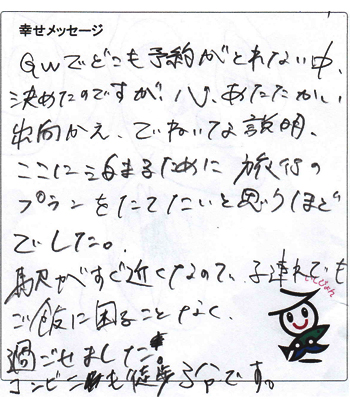 幸せメッセージ
GWでどこも予約がとれない中、
決めたのですが、心あたたかい
出向かえ、ていねいな説明、
ここに泊まるために旅行の
プランをたてたいと思うほど
でした。
駅がすぐ近くなので、子連れでも
ご飯に困ることなく、
過ごせました
コンビニも徒歩3分です。